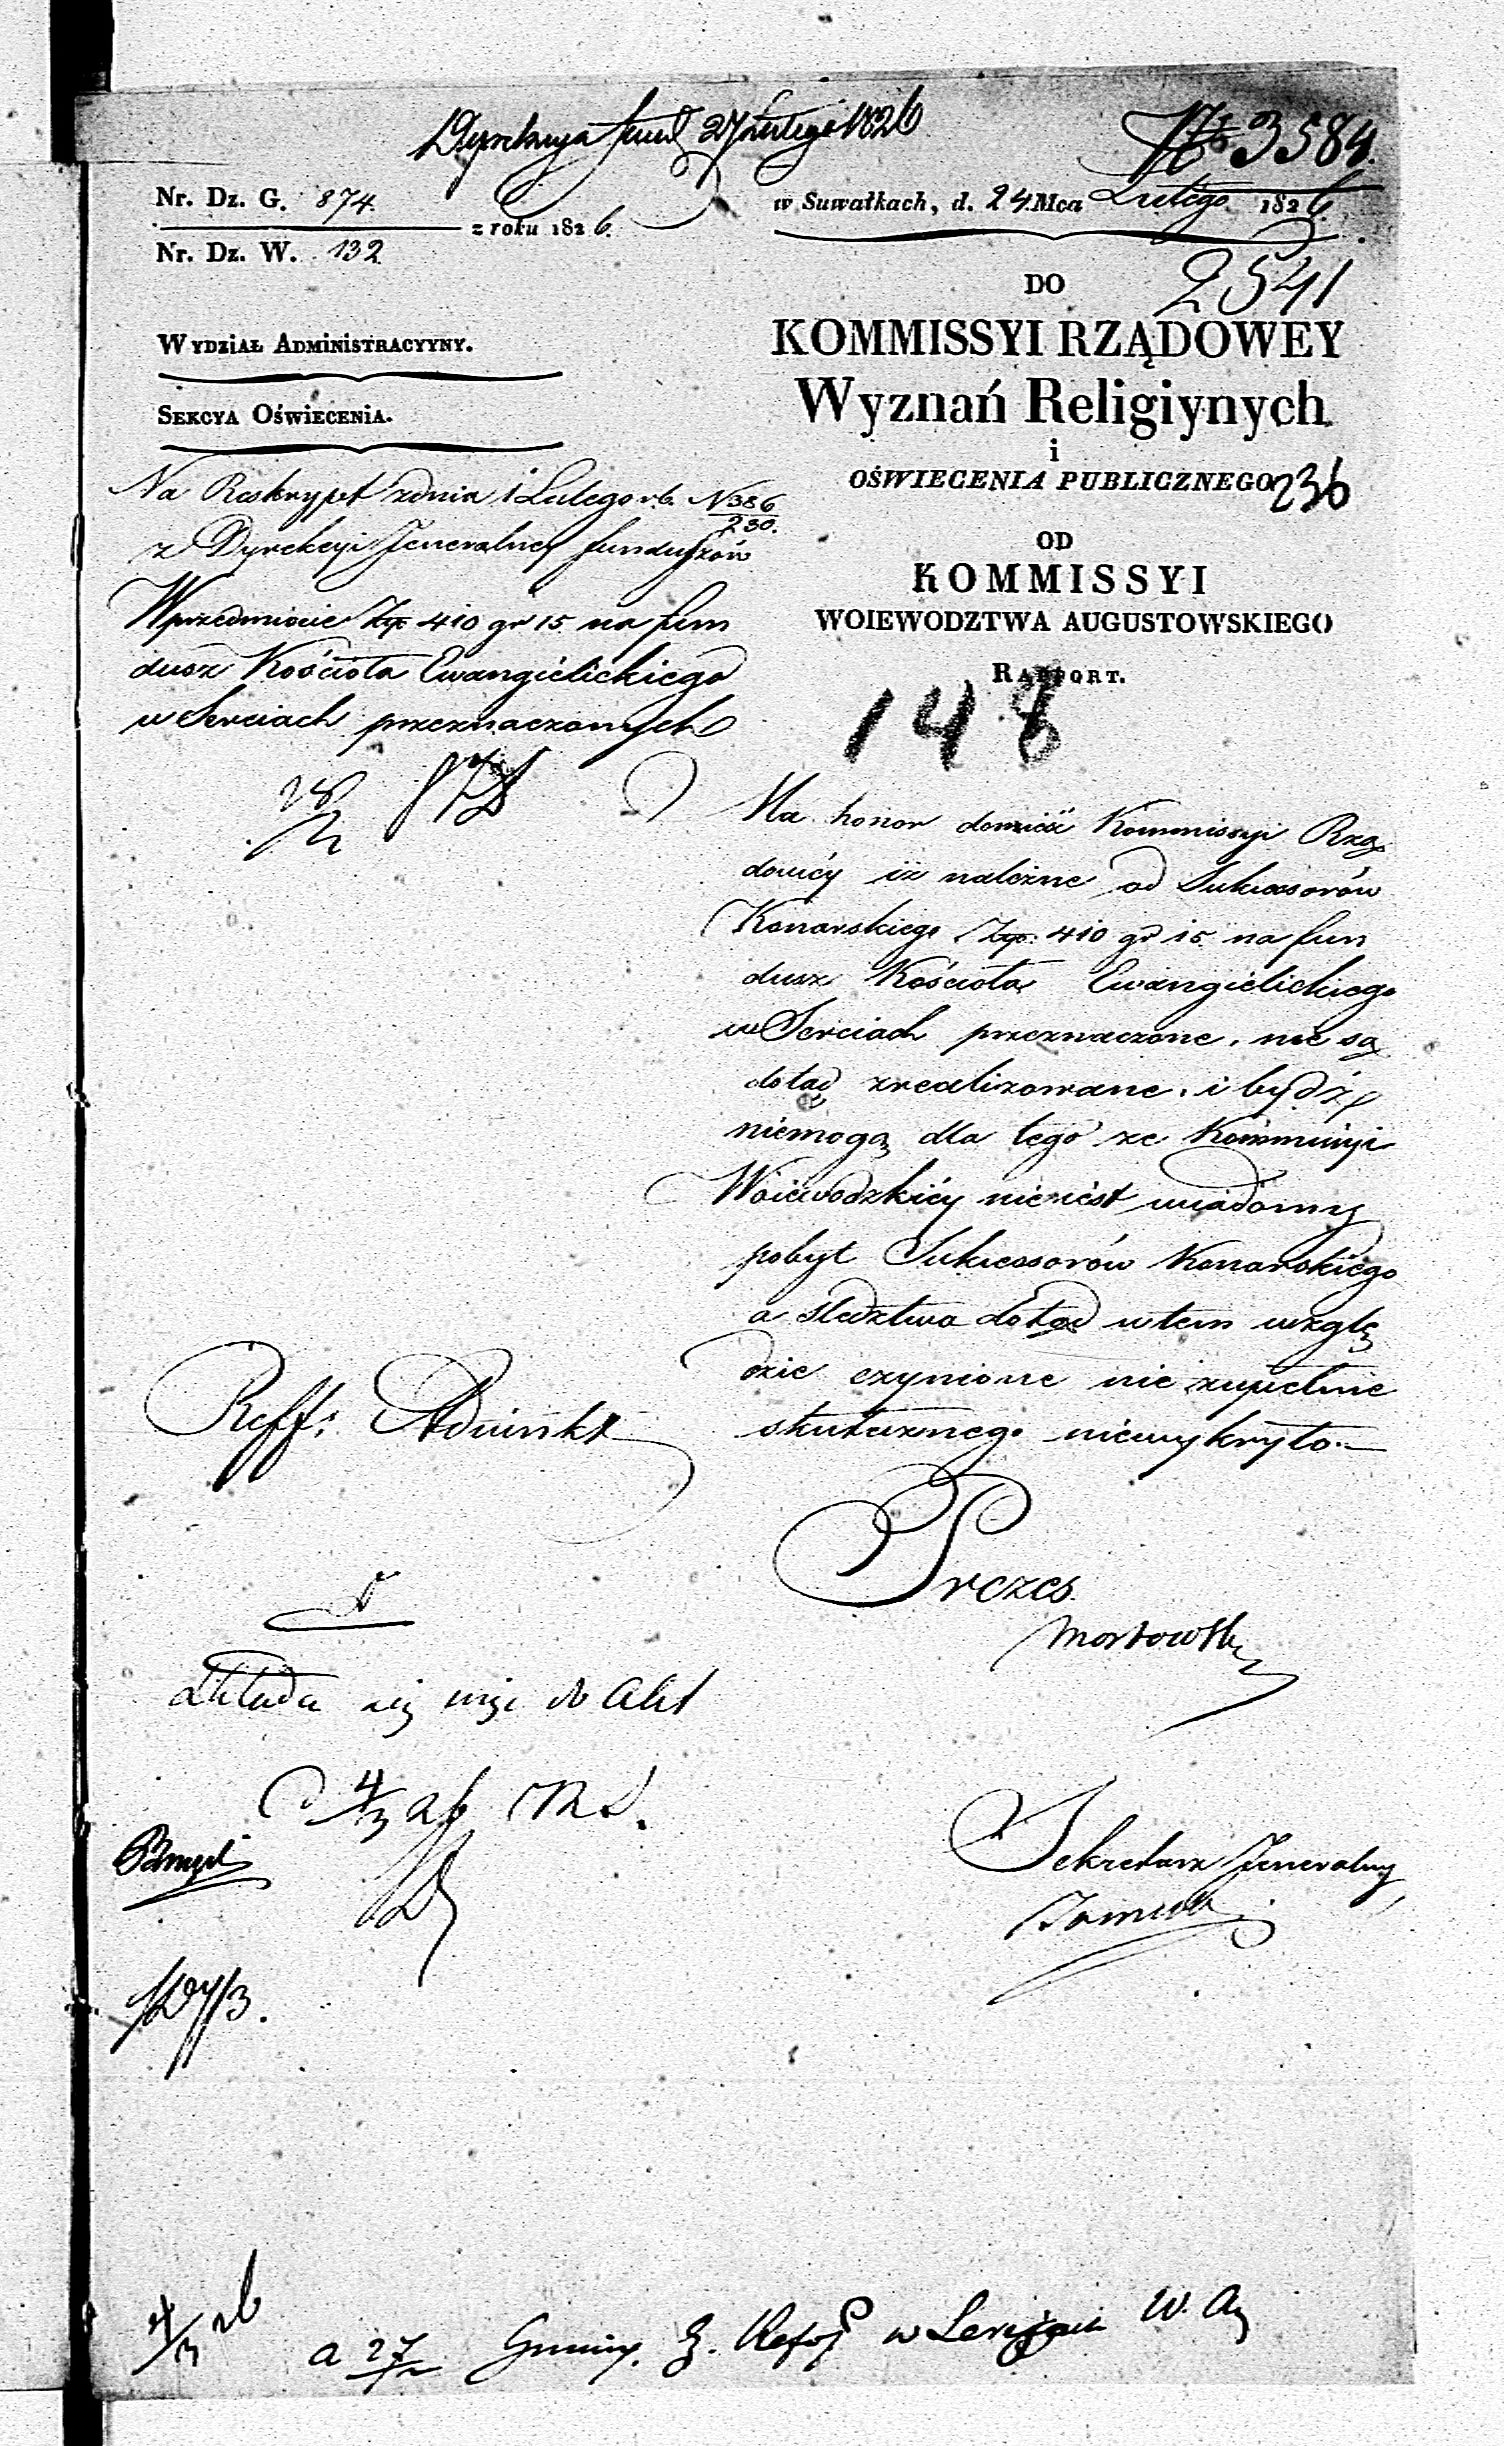 Dyrekcya fund 27 Lutego 1826
No 3584.
Nr. Dz. G. 874.
z roku 1826.
Nr. Dz. W. 132
w Suwałkach, d. 24 Mca Lutego 1826.
2541
WYDZIAŁ ADMINISTRACYYNY.
SEKCYA OŚWIECENIA.
DO
KOMMISSYI RZĄDOWEY
Wyznań Religiynych
i
OŚWIECENIA PUBLICZNEGO
236
OD
KOMMISSYI
WOIEWODZTWA AUGUSTOWSKIEGO
RAPPORT.
148
Na Reskrypt zdnia 1 Lutego r.b. N 386
230.
z Dyrekcyi Jeneralney funduszów
Wprzedmiocie Złp 410 gr 15 na fun
dusz Kościoła Ewangielickiego
w Serciach przeznaczonych
28
2
Ma honor donieść Kommissyi Rzą
dowéy iż należne od Sukcessorów
Konarskiego Złp. 410 gr 15 na fun
dusz Kościoła Ewangielickiego
w Serciach przeznaczone, nie są
dotąd zrealizowane, i bydź
niemogą dla tego że Kommissyi
Woiewodzkiéy nieiest wiadomy
pobyt Sukcessorów Konarskiego
a sledztwa dotąd wtem wzglę
dzie czynione nic zupełnie
skutecznego niewykryto.—
Reff: Adiunkt
Prezes
Sekretarz Jeneralny
do Akt
4/3 26
4/3 26
a 27 Gminy E. Refor w W. A